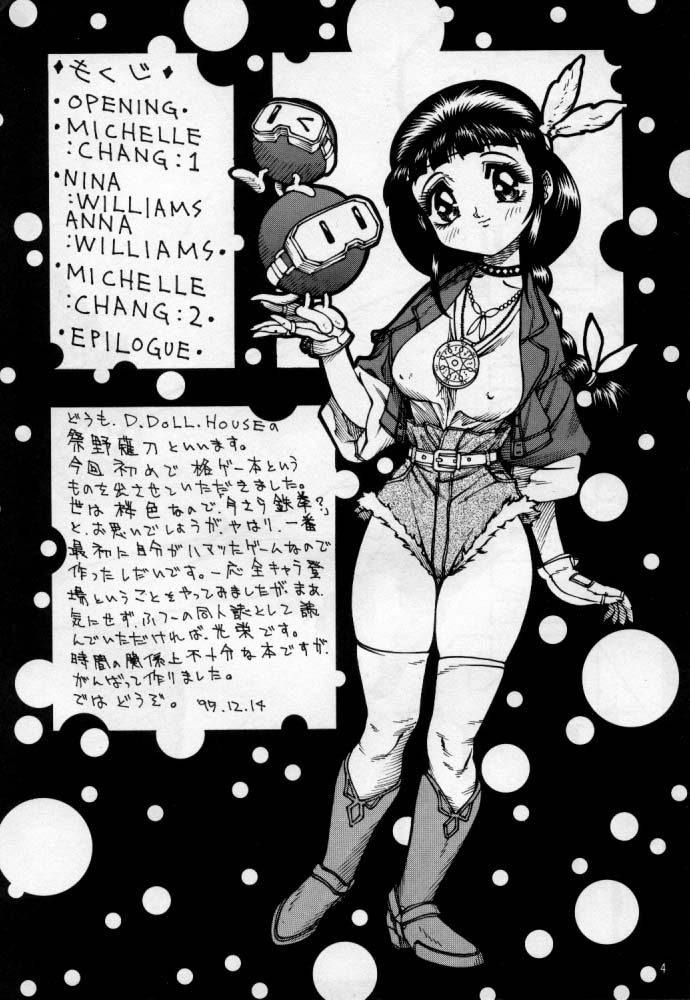 ♦もくじ♦
・OPENING・
・MICHELLE
:CHANG:1
・NINA
:WILLIAMS
ANNA
:WILLIAMS・
・MICHELLE
:CHANG:2・
・EPILOGUE・
どうも、D.DOLL.HOUSEの
祭野薙刀といいます。
今回初めて格ゲー本という
ものを出させていただきました。
世は桃色なので、「今さら鉄拳?」
と、お思いでしょうが、やはり、一番
最初に自分がハマッたゲームなので
作ったしだいです。一応全キャラ登
場ということをやってみましたが、まあ、
気にせず、ふつーの同人誌として読
んでいただければ、光栄です。
時間の関係上不十分な本ですが、
がんばって作りました。
ではどうぞ。 99.12.14
4